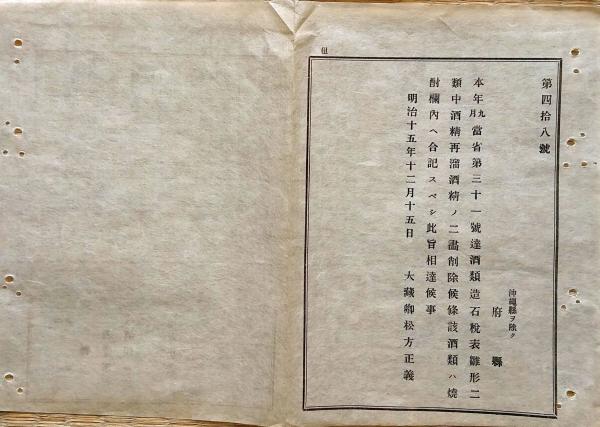 第四拾八號
府縣
沖繩縣ヲ除ク
本年九月當省第三十一號達酒類造石稅表雛形二
類中酒精再溜酒精ノ二畵削除候條該酒類ハ燒
酎欄內ヘ合記スベシ此旨相達候事
明治十五年十二月十五日 大藏卿松方正義